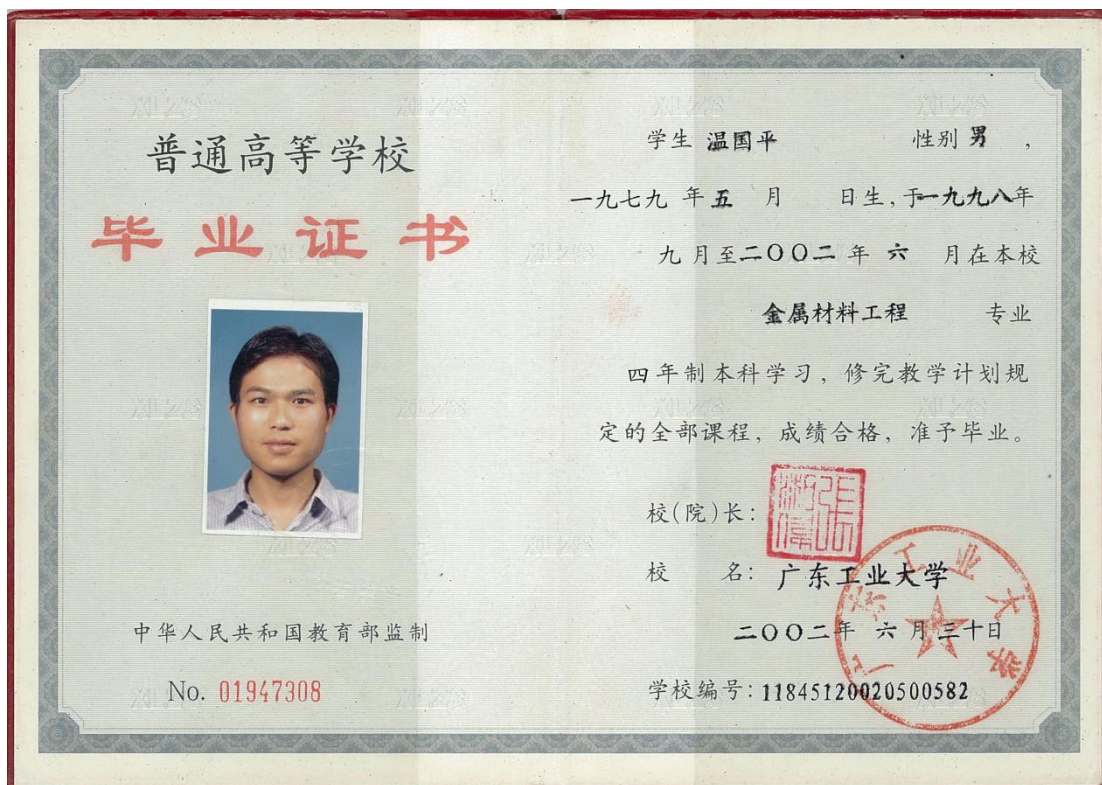 普通高等学校
毕业证书
中华人民共和国教育部监制
No. 01947308
学生 温国平 性别 男 ,
一九七九 年 五 月 日生, 于一九九八年
九 月至二〇〇二 年 六 月在本校
金属材料工程 专业
四 年制本科学习, 修完教学计划规
定的全部课程, 成绩合格, 准予毕业。
校(院)长:
校 名: 广东工业大学
二〇〇二年 六 月三十日
学校编号: 11845120020500582
广东工业大学